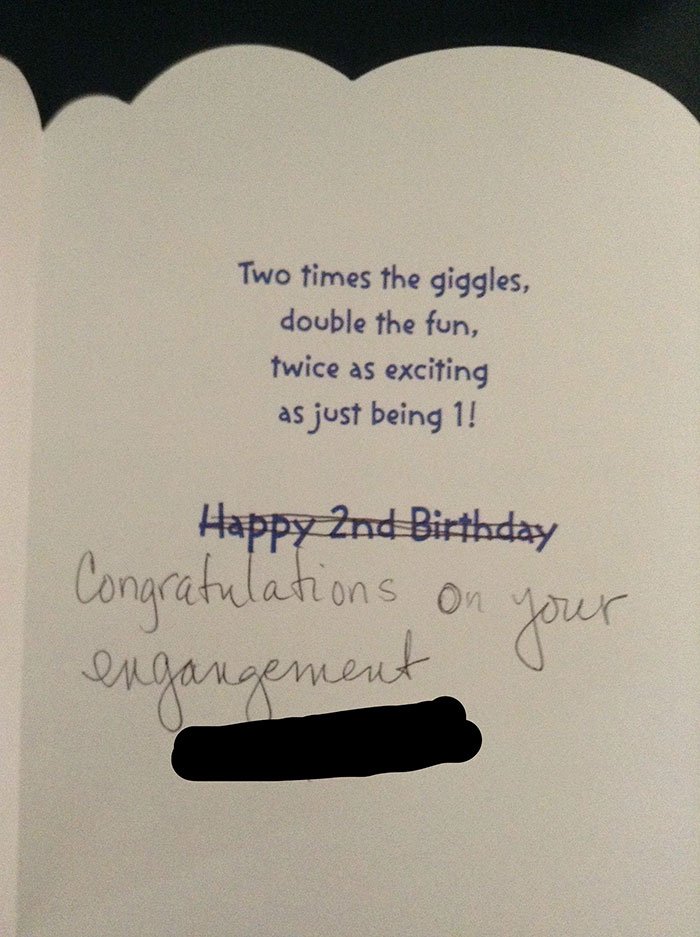 Two times the giggles,
double the fun,
twice as exciting
as just being 1!
Happy 2nd Birthday
Congratulations on your
engangement